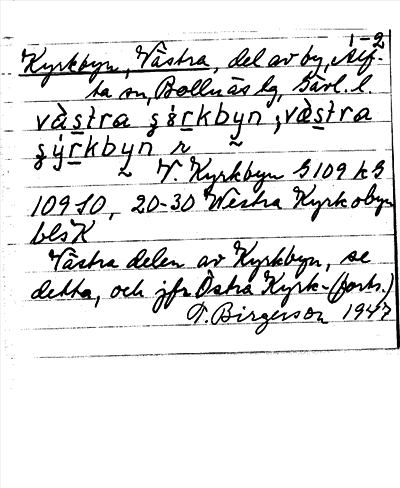 1-2
Kyrkbyn, Västra, del av by, Alf-
ta sn, Bollnäs lg, Gävl. l.
västra kyrkbyn, västra
V. Kyrkbyn G 109 k G
109 SO, 20-30 Westra Kyrkobyn
blsK
Västra delen av Kyrkbyn, se
detta, och jfr Östra Kyrk- (forts.)
T. Birgerson 1947